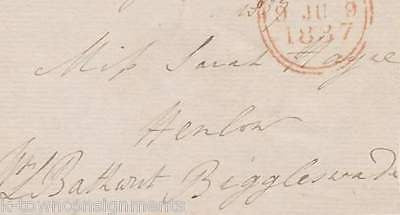 9 JU 9
1837
Miss Sarah Hayne
Henlow
L Bathurst Biggleswade
k-townconsignments